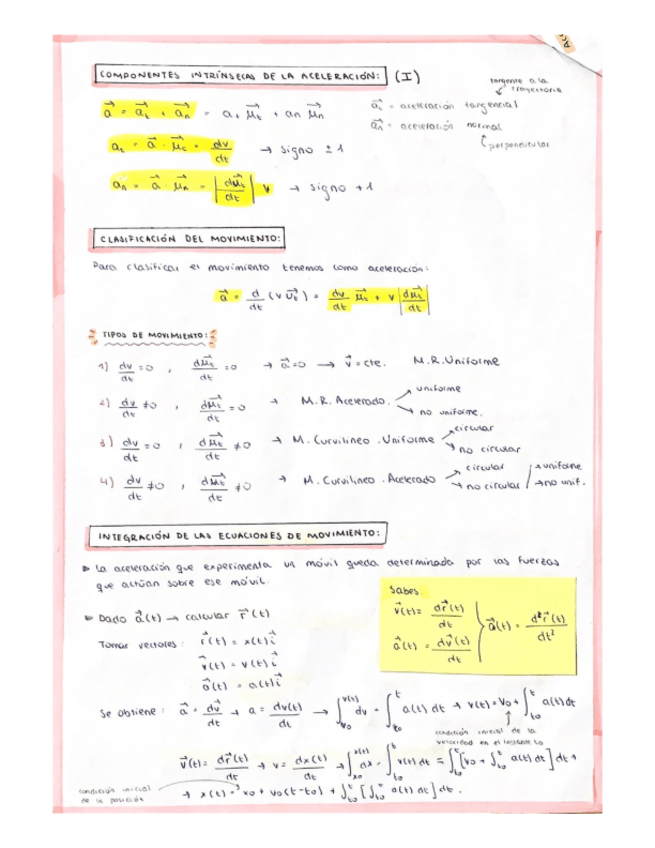 COMPONENTES INTRÍNSECAS DE LA ACELERACIÓN: (I)
tangente a la trayectoria
a⃗ = a⃗t + a⃗n = at μ⃗t + an μ⃗n
a⃗t = aceleración tangencial
a⃗n = aceleración normal
perpendicular
at = a⃗ · μ⃗t = dv/dt → signo ±1
an = a⃗ · μ⃗n = |dμ⃗t/dt| v → signo +1
CLASIFICACIÓN DEL MOVIMIENTO:
Para clasificar el movimiento tenemos como aceleración:
a⃗ = d/dt (v u⃗t) = dv/dt μ⃗t + v |dμ⃗t/dt|
TIPOS DE MOVIMIENTO:
1) dv/dt = 0 , dμ⃗t/dt = 0 → a⃗ = 0 → v⃗ = cte. M.R.Uniforme
2) dv/dt ≠ 0 , dμ⃗t/dt = 0 → M.R. Acelerado. → uniforme → no uniforme.
3) dv/dt = 0 , dμ⃗t/dt ≠ 0 → M. Curvilíneo .Uniforme → circular → no circular
4) dv/dt ≠ 0 , dμ⃗t/dt ≠ 0 → M. Curvilíneo .Acelerado → circular → no circular / → uniforme → no unif.
INTEGRACIÓN DE LAS ECUACIONES DE MOVIMIENTO:
La aceleración que experimenta un móvil queda determinada por las fuerzas
que actúan sobre ese móvil.
Sabes:
v⃗(t) = dr⃗(t)/dt
a⃗(t) = dv⃗(t)/dt
} a⃗(t) = d²r⃗(t)/dt²
Dado a⃗(t) → calcular r⃗(t)
Tomar vectores: r⃗(t) = x(t) i⃗
v⃗(t) = v(t) i⃗
a⃗(t) = a(t) i⃗
Se obtiene: a⃗ = dv⃗/dt → a = dv(t)/dt → ∫v0^v(t) dv = ∫t0^t a(t) dt → v(t) = v0 + ∫t0^t a(t) dt
condición inicial de la
velocidad en el instante to
v⃗(t) = dr⃗(t)/dt → v = dx(t)/dt → ∫x0^x(t) dx = ∫t0^t v(t) dt = ∫t0^t [v0 + ∫t0^t a(t) dt] dt →
condición inicial
de la posición
→ x(t) = x0 + v0(t-t0) + ∫t0^t [∫t0^t a(t) dt] dt.